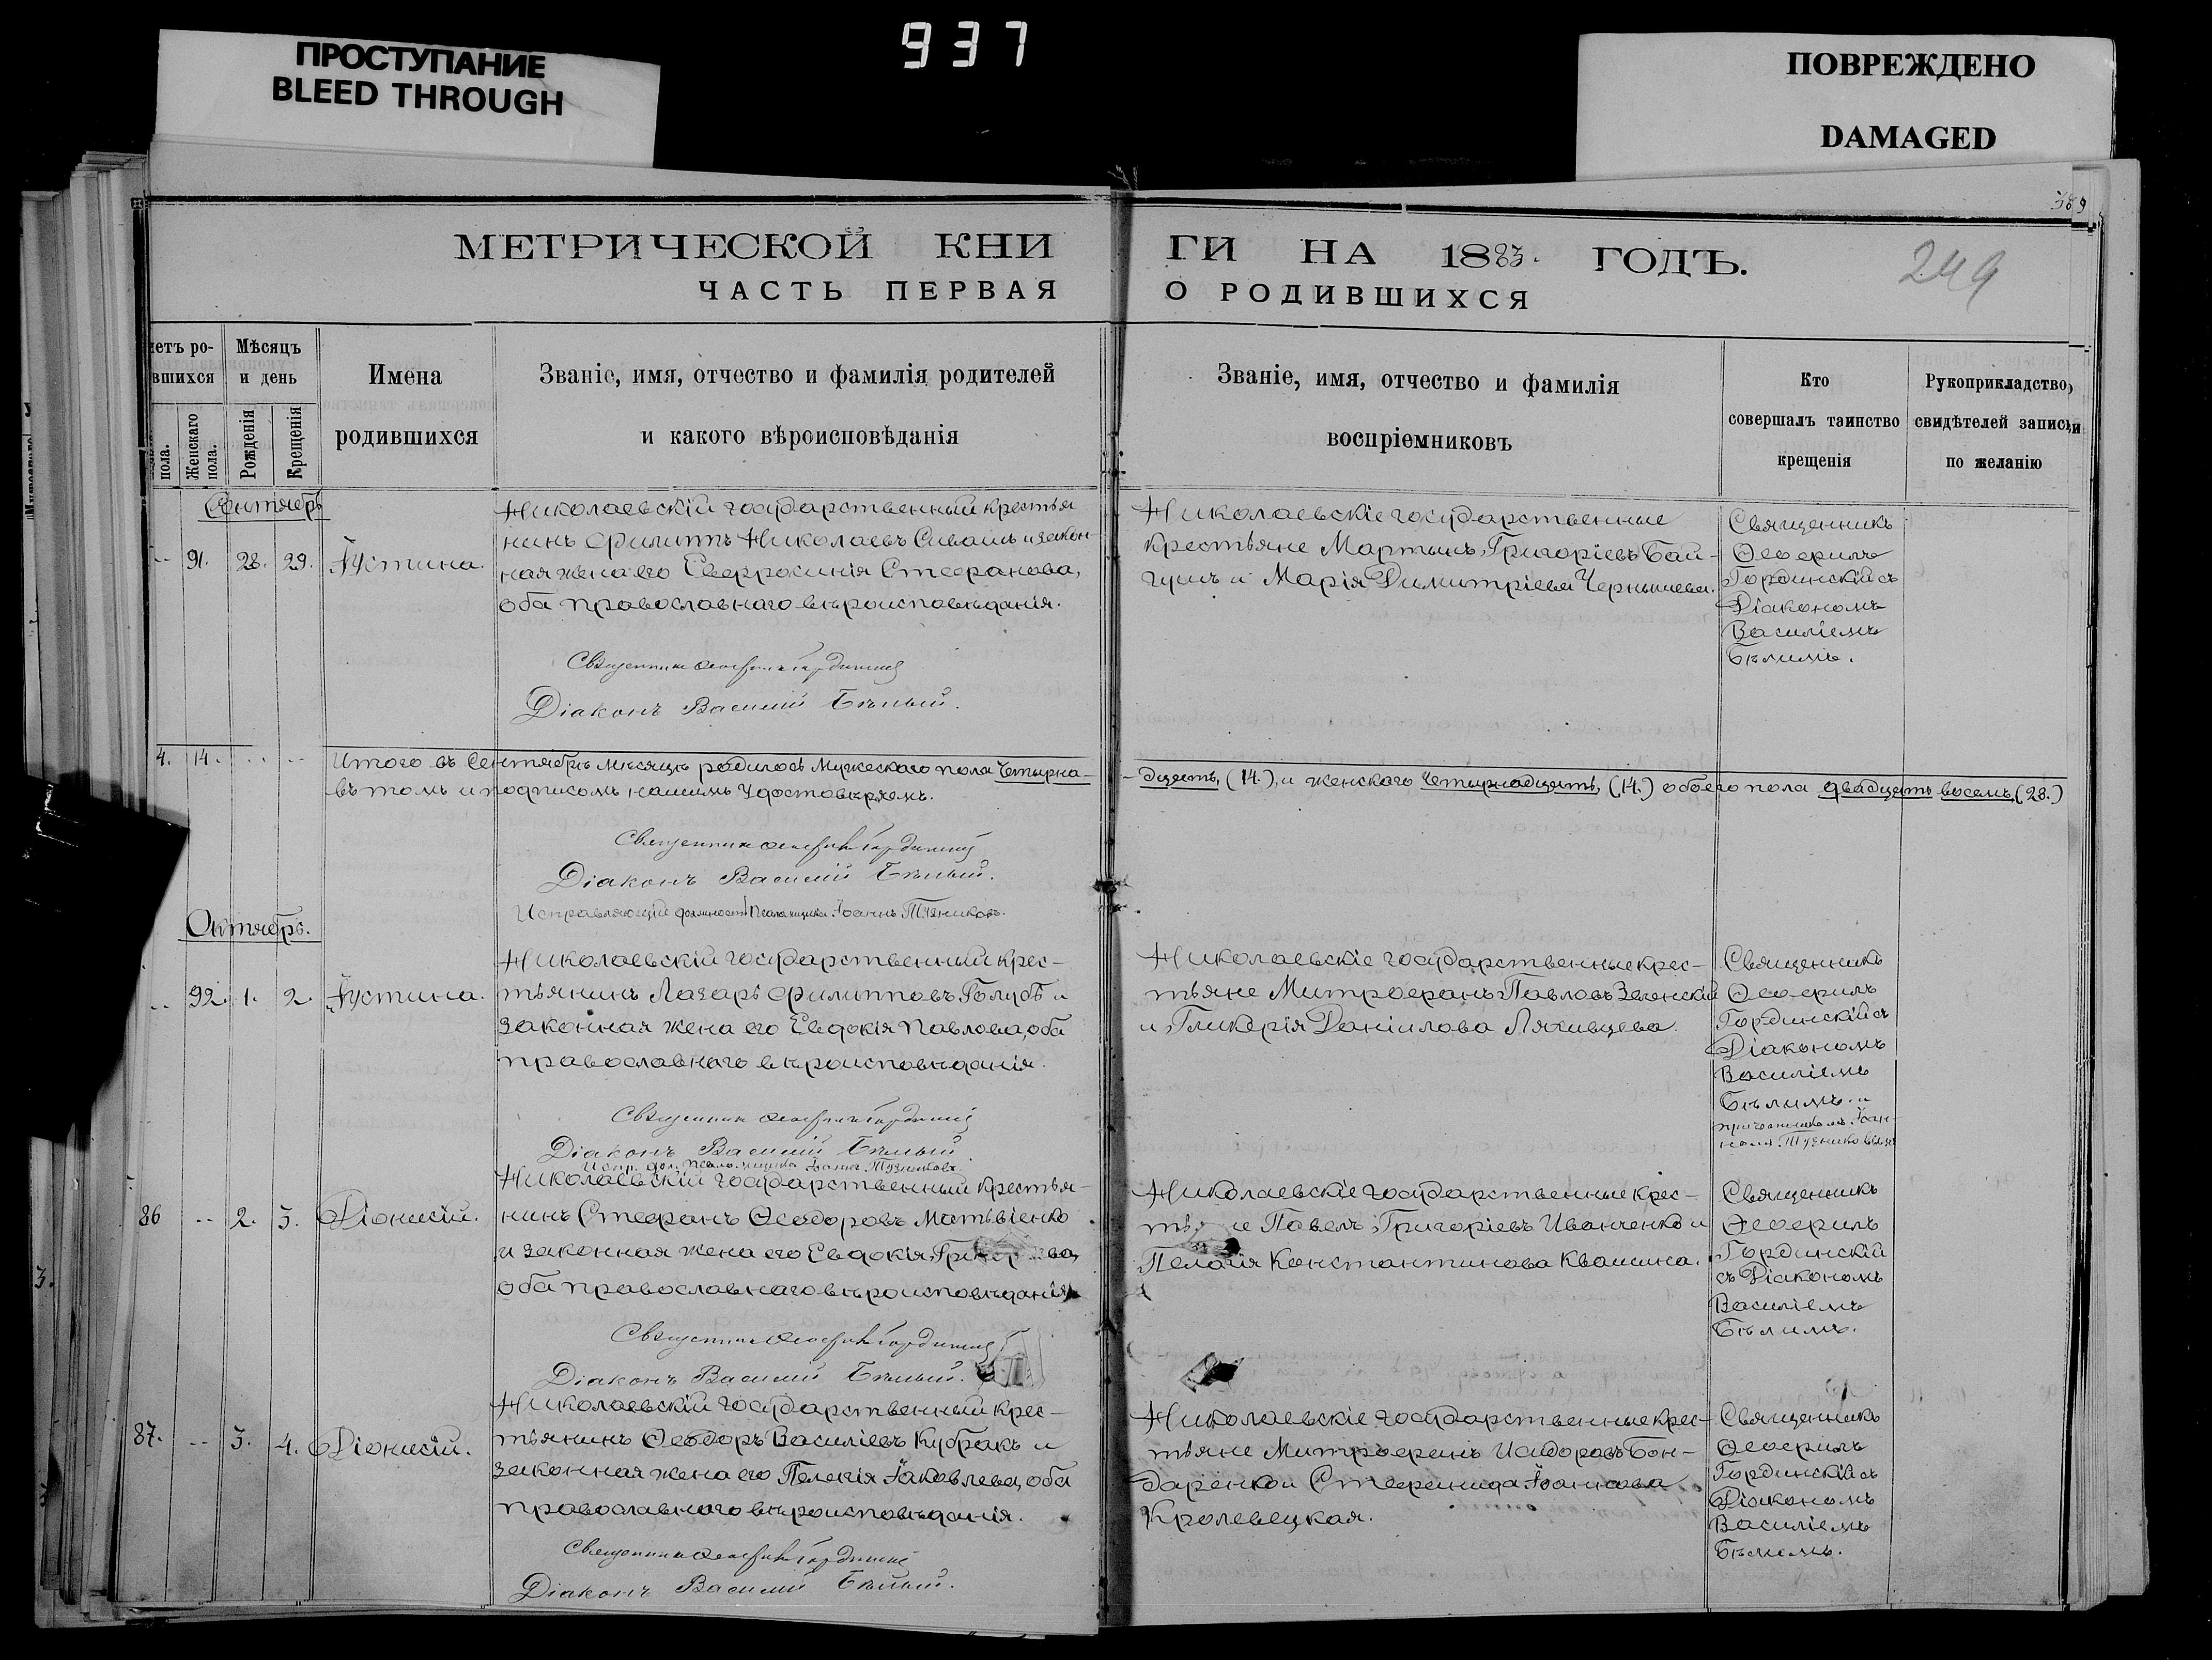 ПРОСТУПАНИЕ
BLEED THROUGH
937
ПОВРЕЖДЕНО
DAMAGED
389
249
МЕТРИЧЕСКОЙ КНИ
ГИ НА 1883. ГОДЪ.
ЧАСТЬ ПЕРВАЯ
О РОДИВШИХСЯ
етъ ро-
вшихся
пола.
Женскаго
пола.
Мѣсяцъ
и день
Рожденія
Крещенія
Имена
родившихся
Званіе, имя, отчество и фамилія родителей
и какого вѣроисповѣданія
Званіе, имя, отчество и фамилія
воспріемниковъ
Кто
совершалъ таинство
крещенія
Рукоприкладство
свидѣтелей записи
по желанію
Сентябрь
-- 91. 28. 29. Іустина.
Николаевскій государственный крестья
нинъ Филиппъ Николаевъ Сивашъ и закон-
ная жена его Евфросинія Стефанова,
оба православнаго вѣроисповѣданія.
Священникъ Ѳеофилъ Гординскій
Діаконъ Василій Бѣлый.
Николаевскіе государственные
крестьяне Мартынъ Григоріевъ Бай-
гушъ и Марія Димитріева Чернышева.
Священникъ
Ѳеофилъ
Гординскій съ
Діакономъ
Василіемъ
Бѣлымъ.
4. 14. -- --
Итого въ Сентябрѣ мѣсяцѣ родилось мужескаго пола четырна-
дцать, (14.), и женскаго четырнадцать, (14.) обоего пола двадцать восемь, (28.)
въ томъ и подписомъ нашимъ удостовѣряемъ.
Священникъ Ѳеофилъ Гординскій
Діаконъ Василій Бѣлый.
Исправляющій должность Псаломщика Іоаннъ
Октябрь.
-- 92. 1. 2. Іустина.
Николаевскій государственный крес-
тьянинъ Лазарь Филипповъ Голубъ и
законная жена его Евдокія Павлова, оба
православнаго вѣроисповѣданія.
Священникъ Ѳеофилъ Гординскій
Діаконъ Василій Бѣлый.
Испр. дол. псаломщика Іоаннъ
Николаевскіе государственные крес-
тьяне Митрофанъ Павловъ Зеленскій
и Гликерія Даніилова Ляховцева.
Священникъ
Ѳеофилъ
Гординскій съ
Діакономъ
Василіемъ
Бѣлымъ. и
причетникомъ Іоан-
номъ
86 -- 2. 3. Діонисій.
Николаевскій государственный крестья-
нинъ Стефанъ Ѳеодоровъ Матвіенко
и законная жена его Евдокія Григор ва,
оба православнаго вѣроисповѣданія
Священникъ Ѳеофилъ Гординскій
Діаконъ Василій Бѣлый.
Николаевскіе государственные крес-
ть е Павелъ Григоріевъ Иванченко и
Пелагія Константинова Квашина.
Священникъ
Ѳеофилъ
Гординскій
съ Діакономъ
Василіемъ
Бѣлымъ.
87. -- 3. 4. Діонисій.
Николаевскій государственный крес-
тьянинъ Ѳеодоръ Василіевъ Кубракъ и
законная жена его Пелагія Іаковлева, оба
православнаго вѣроисповѣданія.
Священникъ Ѳеофилъ Гординскій
Діаконъ Василій Бѣлый.
Николаевскіе государственные крес-
тьяне Митрофанъ Исидоровъ Бон-
даренко и Стефанида Іоаннова
Кролевецкая.
Священникъ
Ѳеофилъ
Гординскій съ
Діакономъ
Василіемъ
Бѣлымъ.